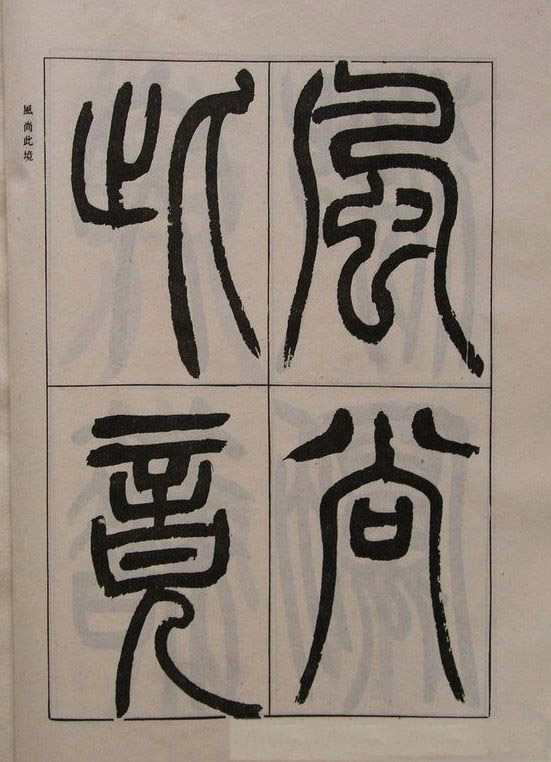 風尚
此竟
風尚此境